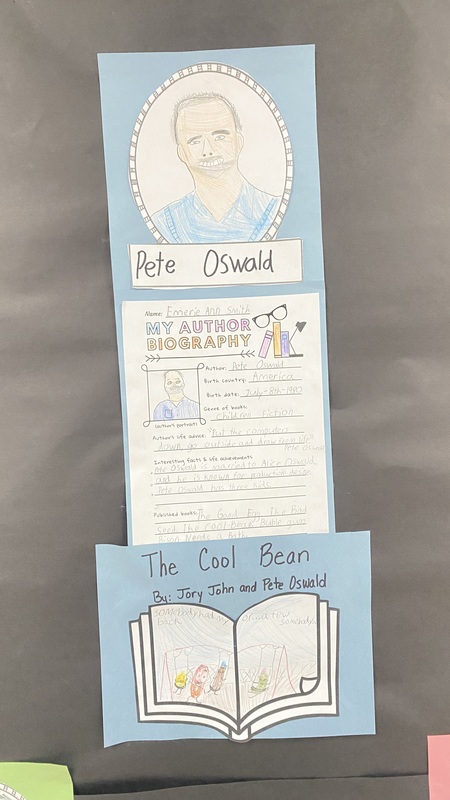 Pete Oswald
Name: Emerie Ann Smith
MY AUTHOR
BIOGRAPHY
Author: Pete Oswald
Birth country: America
Birth date:
Genre of books:
Children Fiction
Author's portrait
Author's life advice: "Put the computer
down, go outside and draw from life"
Pete Oswald
Interesting facts & life achievements
Mr. Oswald is married to Alice Oswald
and he is known for
Pete Oswald has three kids
Published books: The Good Egg The Bad
Seed The Cool Bean
Bison Needs a Bath
The Cool Bean
By: Jory John and Pete Oswald
somebody had my
back
somebody